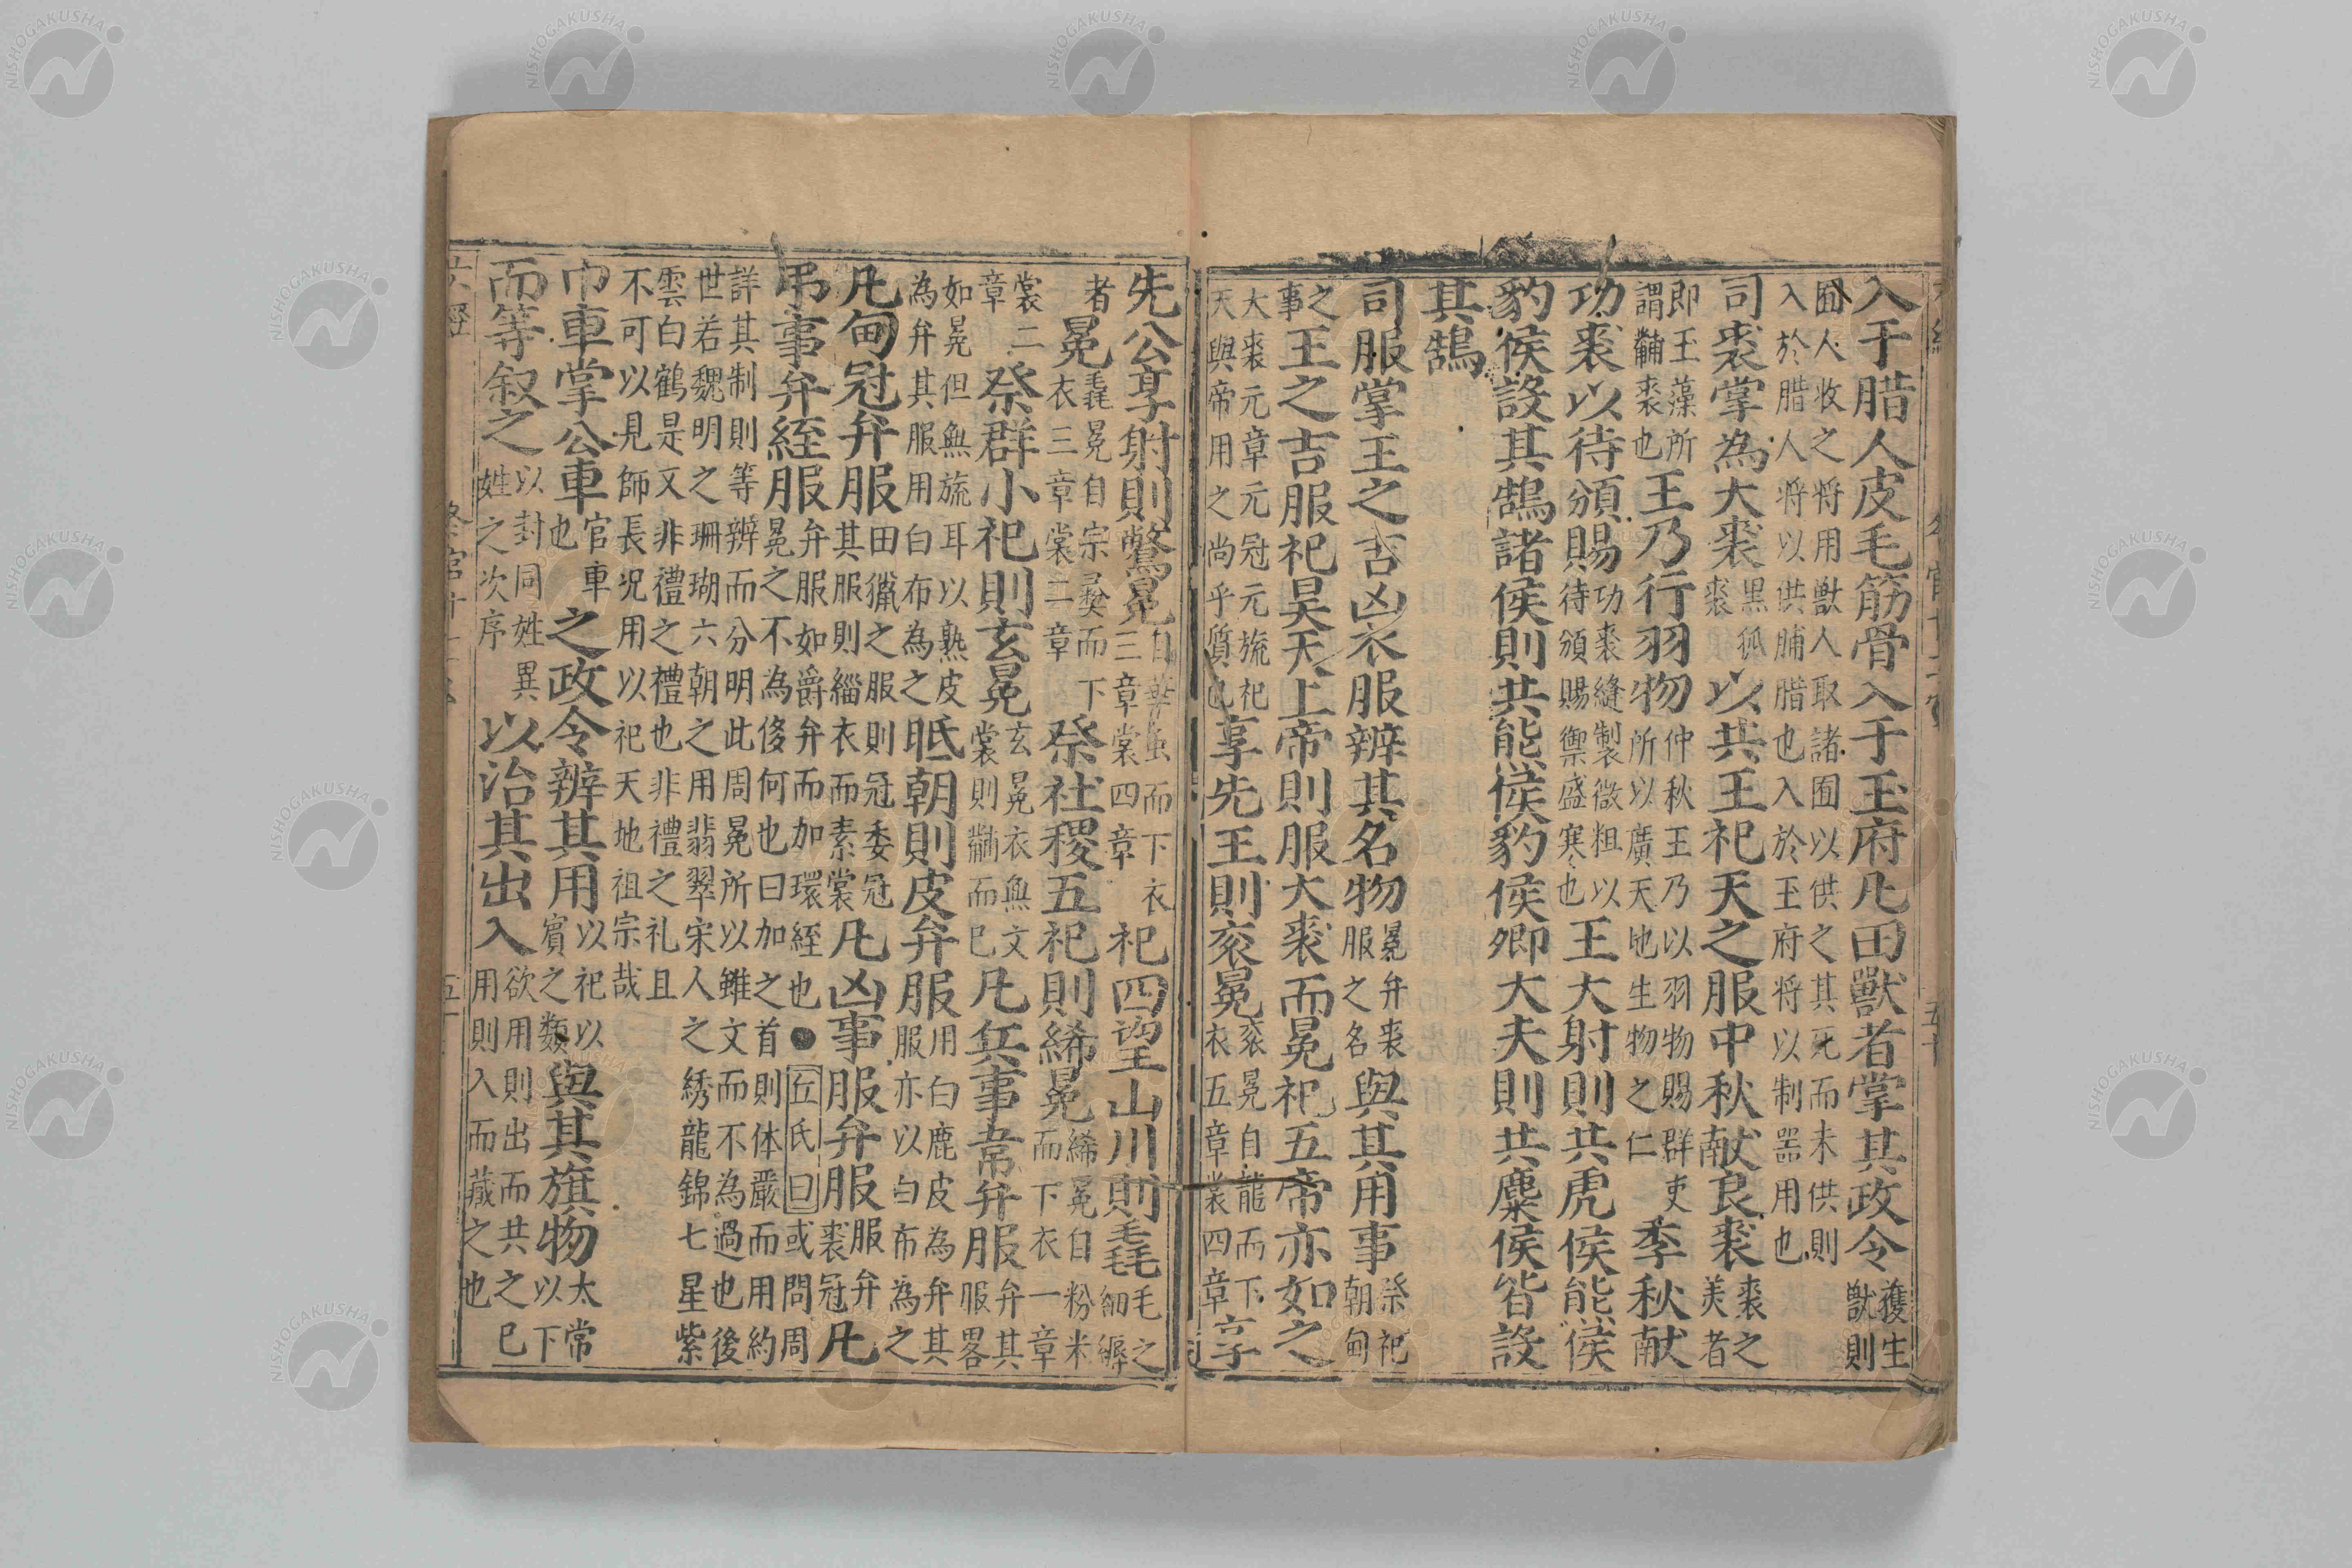 入于腊人皮毛筋骨入于玉府凡田獸者掌其政令獲生獸則
囿人收之将用獸人取諸囿以供之其死而未供則
入於腊人将以供脯腊也入於王府将以制噐用也
司裘掌為大裘黒狐裘以共王祀天之服中秋献良裘裘之美者
即王藻所謂黼裘也王乃行羽物仲秋王乃以羽物賜群吏所以廣天地生物之仁季秋献
功裘以待頒賜功裘縫製微粗以待頒賜禦盛寒也王大射則共虎侯熊侯
豹侯設其鵠諸侯則共熊侯豹侯卿大夫則共麋侯皆設
其鵠
司服掌王之吉凶衣服辨其名物冕弁裘服之名與其用事祭祀朝甸
之事王之吉服祀昊天上帝則服大裘而冕祀五帝亦如之
大裘元章元冠元旒祀天與帝用之尚乎質也享先王則衮冕衮冕自龍而下衣五章裳四章享
先公享射則鷩冕自華虫而下衣三章裳四章祀四望山川則毳毛之細縟
者冕毳冕自宗彛而下衣三章裳二章祭社稷五祀則絺冕絺冕自粉米而下衣一章
裳二章祭群小祀則玄冕玄冕衣無文裳則黼而已凡兵事韋弁服弁其服畧
如冕但無旒耳以熟皮為弁其服用白布為之眡朝則皮弁服用白鹿皮為弁其服亦以白布為之
凡甸冠弁服田獵之服則冠委冠其服則緇衣而素裳凡凶事服弁服服弁裘冠凡
吊事弁絰服弁服如爵弁而加環絰也●丘氏曰或問周冕之不為侈何也曰加之首則体嚴而用約
詳其制則等辨而分明此周冕所以雖文而不為過也後
世若魏明之珊瑚六朝之用翡翠宋人之綉龍錦七星紫
雲白鶴是又非禮之禮也非禮之礼且
不可以見師長况用以祀天地祖宗哉
巾車掌公車官車也之政令辨其用以祀以賓之類與其旗物太常以下
而等叙之以封同姓異姓之次序以治其出入欲用則出而共之已用則入而藏之也
六經
NISHOGAKUSHA